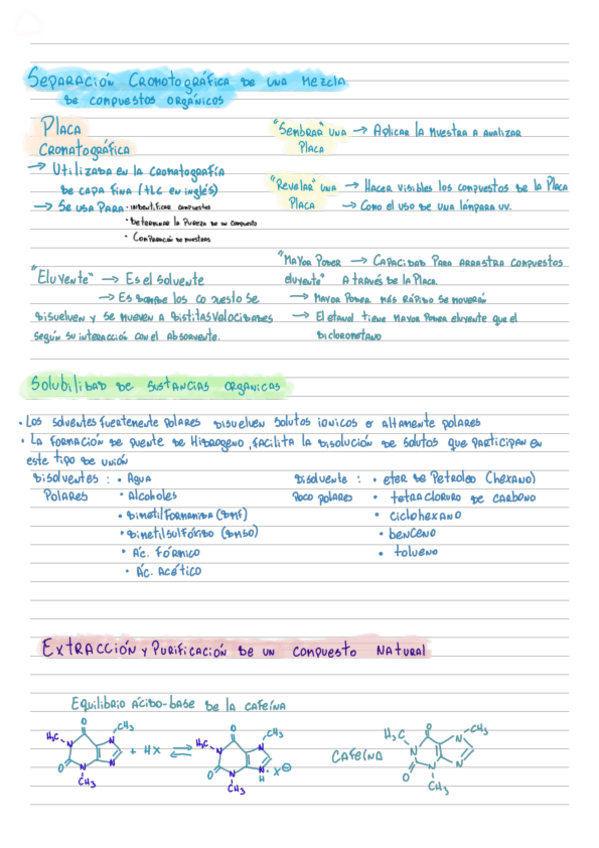 Separación Cromotográfica de una Mezcla
de compuestos orgánicos
Placa
Cromatográfica
→ Utilizada en la cromatografía
de capa fina (TLC en inglés)
→ Se usa para · indentificar compuestos
· Determinar la Pureza de un compuesto
· Comparación de muestras
"Sembrar" una → Aplicar la muestra a analizar
Placa
"Revelar" una → Hacer visibles los compuestos de la Placa
Placa → Como el uso de una lámpara uv.
"Eluyente" → Es el solvente
→ Es donde los co puesto se
disuelven y se mueven a distitas velocidades
según su interacción con el absorvente.
"Mayor Poder → Capacidad Para arrastra compuestos
eluyente" A través de la Placa.
→ Mayor Poder más rápido se moverán
→ El etanol tiene mayor Poder eluyente que el
diclorometano
Solubilidad de sustancias organicas
· Los solventes fuertemente polares disuelven solutos ionicos o altamente polares
· La formación de puente de Hidrogeno, facilita la disolución de solutos que participan en
este tipo de unión
disolventes : · Agua
Polares · Alcoholes
· dimetilformamida (DMF)
· dimetilsulfóxido (DMSO)
· Ác. Fórmico
· Ác. Acético
disolvente : · eter de Petroleo (Hexano)
Poco polares · tetracloruro de carbono
· ciclohexano
· benceno
· tolueno
Extracción y Purificación de un compuesto Natural
Equilibrio ácido-base de la cafeína
O CH3
H3C N N
O N N
CH3
+ HX ⇌
O CH3
H3C N N
O N N
H · X⊖
CH3
Cafeína
O CH3
H3C N N
O N N
CH3